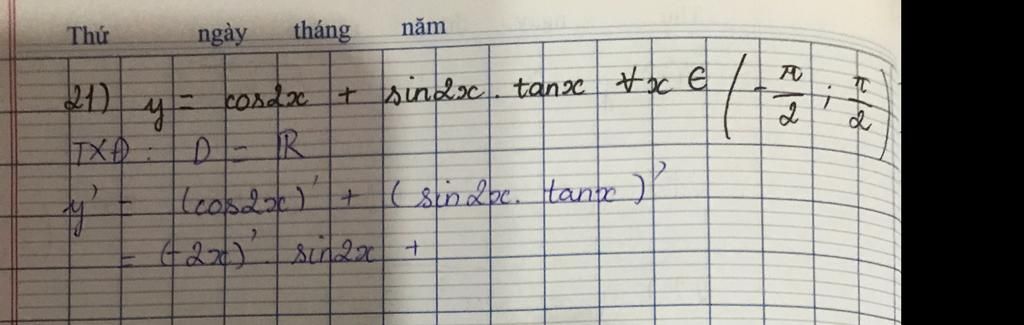 Thứ ngày tháng năm
21) y = cos2x + sin2x . tanx ∀x ∈ (-π/2 ; π/2)
TXĐ : D = R
y' = (cos2x)' + (sin2x. tanx)'
= (-2x)' . sin2x +